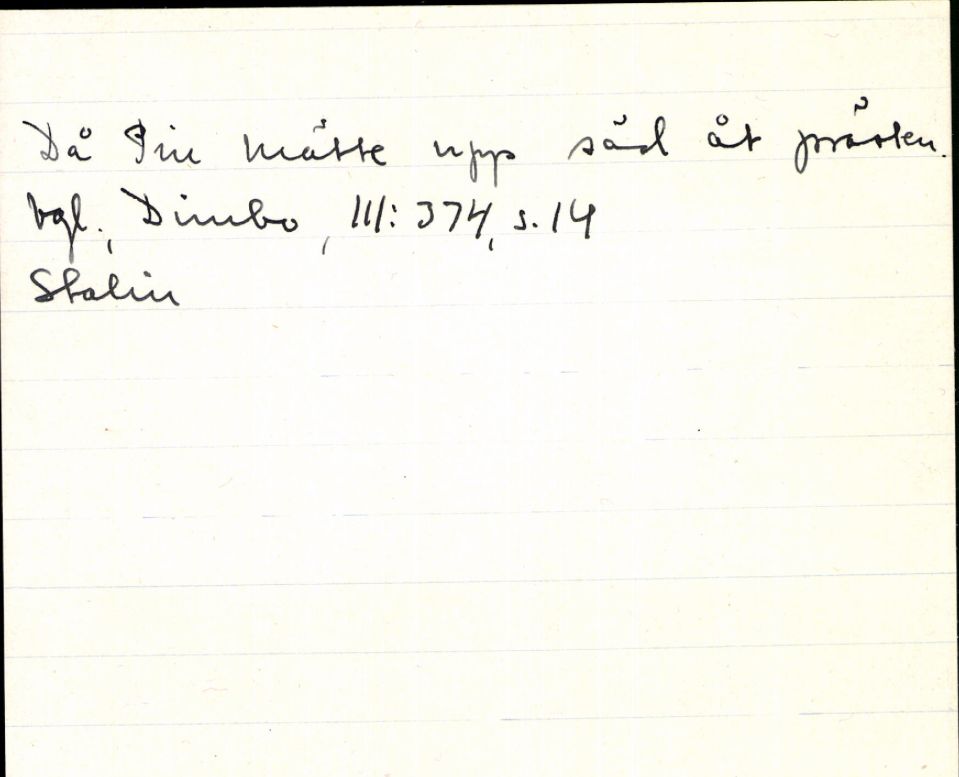 Då Pin mätte upp säd åt prästen.
Vgl., Dimbo, III: 374, s. 14
Stalin